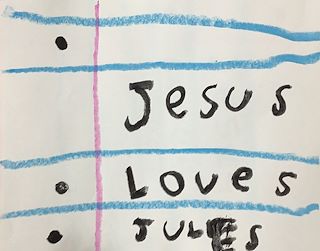 Jesus
Loves
JULES